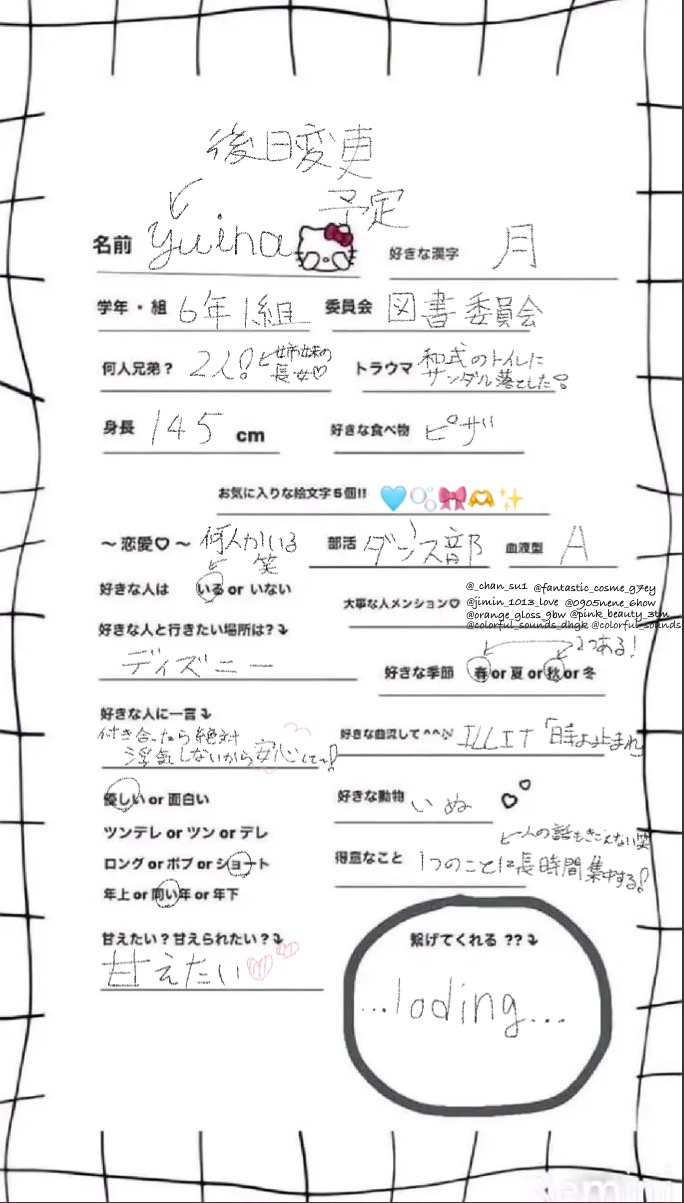 後日変更
予定
名前 yuina
好きな漢字 月
学年・組 6年1組
委員会 図書委員会
何人兄弟? 2人! 姉妹の
長女♡
トラウマ 和式のトイレに
サンダル落とした!
身長 145 cm
好きな食べ物 ピザ
お気に入りな絵文字5個!! 🩵🫧🎀🫶✨
~恋愛♡~ 何人かいる
笑
部活 ダンス部
血液型 A
好きな人は いる or いない
大事な人メンション♡
@_chan_su1 @fantastic_cosme_g7ey
@jimin_1013_love @0905nene_6how
@orange_gloss_gbw @pink_beauty_3tm
@colorful_sounds_dhgk @colorful_sounds
好きな人と行きたい場所は?⤵
ディズニー
2つある!
好きな季節 春 or 夏 or 秋 or 冬
好きな人に一言⤵
付き合ったら絶対
浮気しないから安心して~!
好きな曲流して^^♪ ILLIT「時よ止まれ
優しい or 面白い
好きな動物 いぬ
ツンデレ or ツン or デレ
人の話もきこえない笑
ロング or ボブ or ショート
得意なこと 1つのことに長時間集中する!
年上 or 同い年 or 年下
甘えたい?甘えられたい?⤵
甘えたい
繋げてくれる ??⤵
...loding...